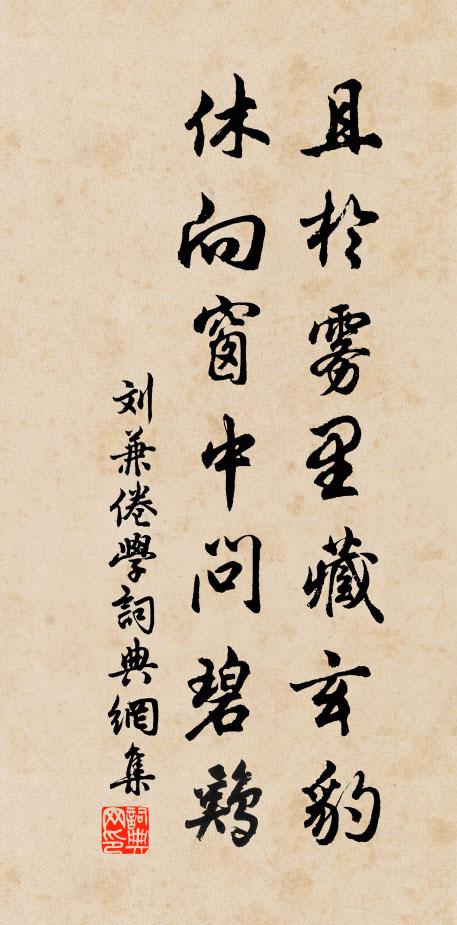 且於雾里藏玄豹
休向窗中问碧鷄
刘兼倦學詞典網集
詞典網印